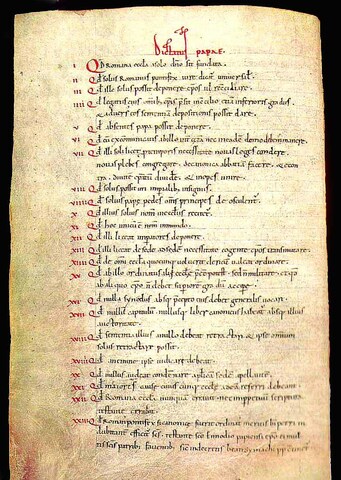 Dictatus papae.
i Qd Romana eccla a solo dno sit fundata.
ii Qd solus Romanus pontifex iure dicat universal.
iii Qd ille solus possit deponere epos ul reconciliare.
iiii Qd legatus eius omib epis psit in concilio etiam inferioris gradus
& adversus eos sententiam depositionis possit dare.
v Qd absentes papa possit deponere.
vi Qd cu excommunicatis ab illo int cetera nec in eade domo debem manere.
vii Qd illi soli licet p temporis necessitate novas leges condere
novas plebes congregare de canonica abbatiam facere & econ
tra divite episcopatu divide & inopes unire.
viii Qd solus possit uti imperialib insigniis.
viiii Qd solius pape pedes oms principes deosculent.
x Qd illius solius nom in eccliis recitet.
xi Qd hoc unicu e nom in mundo.
xii Qd illi liceat imperatores deponere.
xiii Qd illi liceat de sede ad sede necessitate cogente epos transmutare.
xiiii Qd de omi eccla quocunq voluerit clericu valeat ordinare.
xv Qd ab illo ordinatus alii eccle pee potest sed n militare. et qd
ab aliquo epo n debet superiore gradu accipe.
xvi Qd nulla synodus absq pcepto eius debet generalis vocari.
xvii Qd nullu capitulu nullusq liber canonicus habeat absq illius
auctoritate.
xviii Qd sententia illius a nullo debeat retractari & ipse omnium
solus retractare possit.
xviiii Qd a nemine ipse iudicari debeat.
xx Qd nullus audeat condemnare aplica sede apellante.
xxi Qd maiores cause cuiuscunq eccle ad ea referri debeant.
xxii Qd Romana eccla nunqua erravit nec imppetuu scriptura
testante errabit.
xxiii Qd Romanus pontifex si canonice fuerit ordinatus meritis b petri in
dubitanter efficit scs testante sco Ennodio papiensi epo ei mul
tis scis patrib faventib sic in decretis beati symachi pp cinet